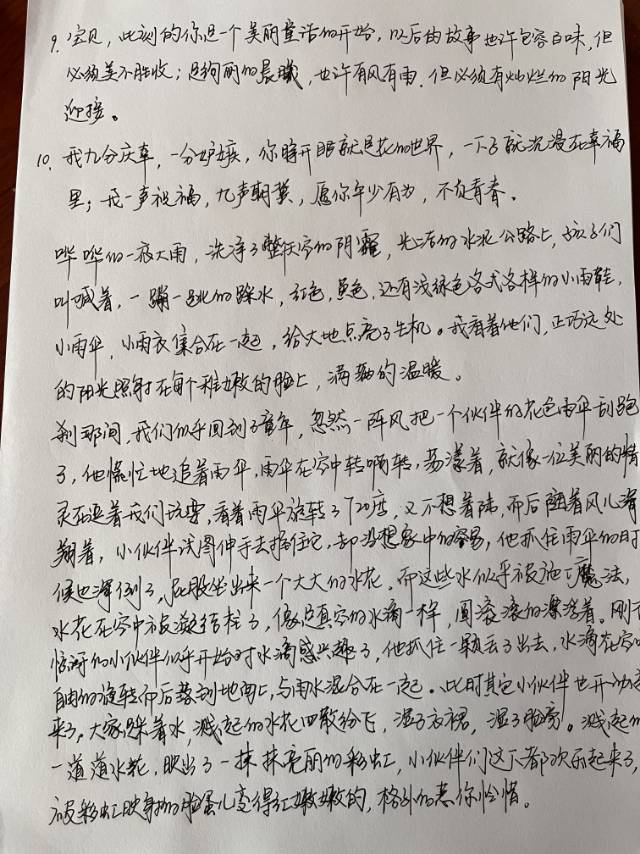 9. 宝贝，此刻的你是一个美丽童话的开始，以后的故事也许包容百味，但
必须美不胜收；是绚丽的晨曦，也许有风有雨，但必须有灿烂的阳光
迎接。
10. 我九分庆幸，一分嫉妒，你睁开眼就是花的世界，一下子就沉浸在幸福
里；祝一声祝福，九声期冀，愿你年少有为，不负青春。
哗哗的一夜大雨，洗净了整天空的阴霾，光洁的水泥公路上，孩子们
叫喊着，一蹦一跳的踩水，红色，黄色，还有浅绿色各式各样的小雨鞋，
小雨伞，小雨衣集合在一起，给大地点亮了生机。我看着他们，正巧远处
的阳光照射在每个稚嫩的脸上，满满的温暖。
刹那间，我们似乎回到了童年，忽然一阵风把一个伙伴的花色雨伞刮跑
了，他慌忙地追着雨伞，雨伞在空中转啊转，荡漾着，就像一位美丽的精
灵在逗着我们玩耍，看着雨伞旋转了720度，又不想着陆，而后随着风儿滑
翔着，小伙伴试图伸手去抓住它，却没想象中的容易，他抓住雨伞的时
候也滑倒了，屁股坐出来一个大大的水花。而这些水似乎被施了魔法，
水花在空中被凝结住了，像是真空的水滴一样，圆滚滚的漂浮着。刚才
惊讶的小伙伴似乎开始对水滴感兴趣了，他抓住一颗丢了出去，水滴在空中
自由的旋转而后落到地面上，与雨水混合在一起。此时其它小伙伴也开动
来了，大家踩着水，溅起的水花四散纷飞，湿了衣裙，湿了脸旁。溅起的
一道道水花，映出了一抹抹亮丽的彩虹，小伙伴们这下都欢乐起来了，
被彩虹映射的脸蛋儿变得红嫩嫩的，格外的惹你怜惜。